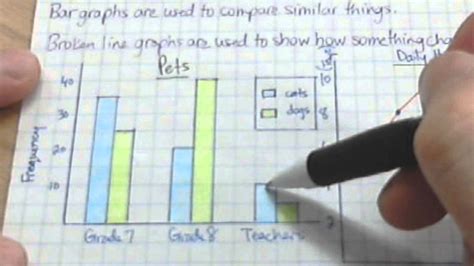 Bar graphs are used to compare similar things.
Broken line graphs are used to show how something cha
Pets
Daily
40
30
20
10
Frequency
cats
dogs
10
8
Grade 7 Grade 8 Teachers